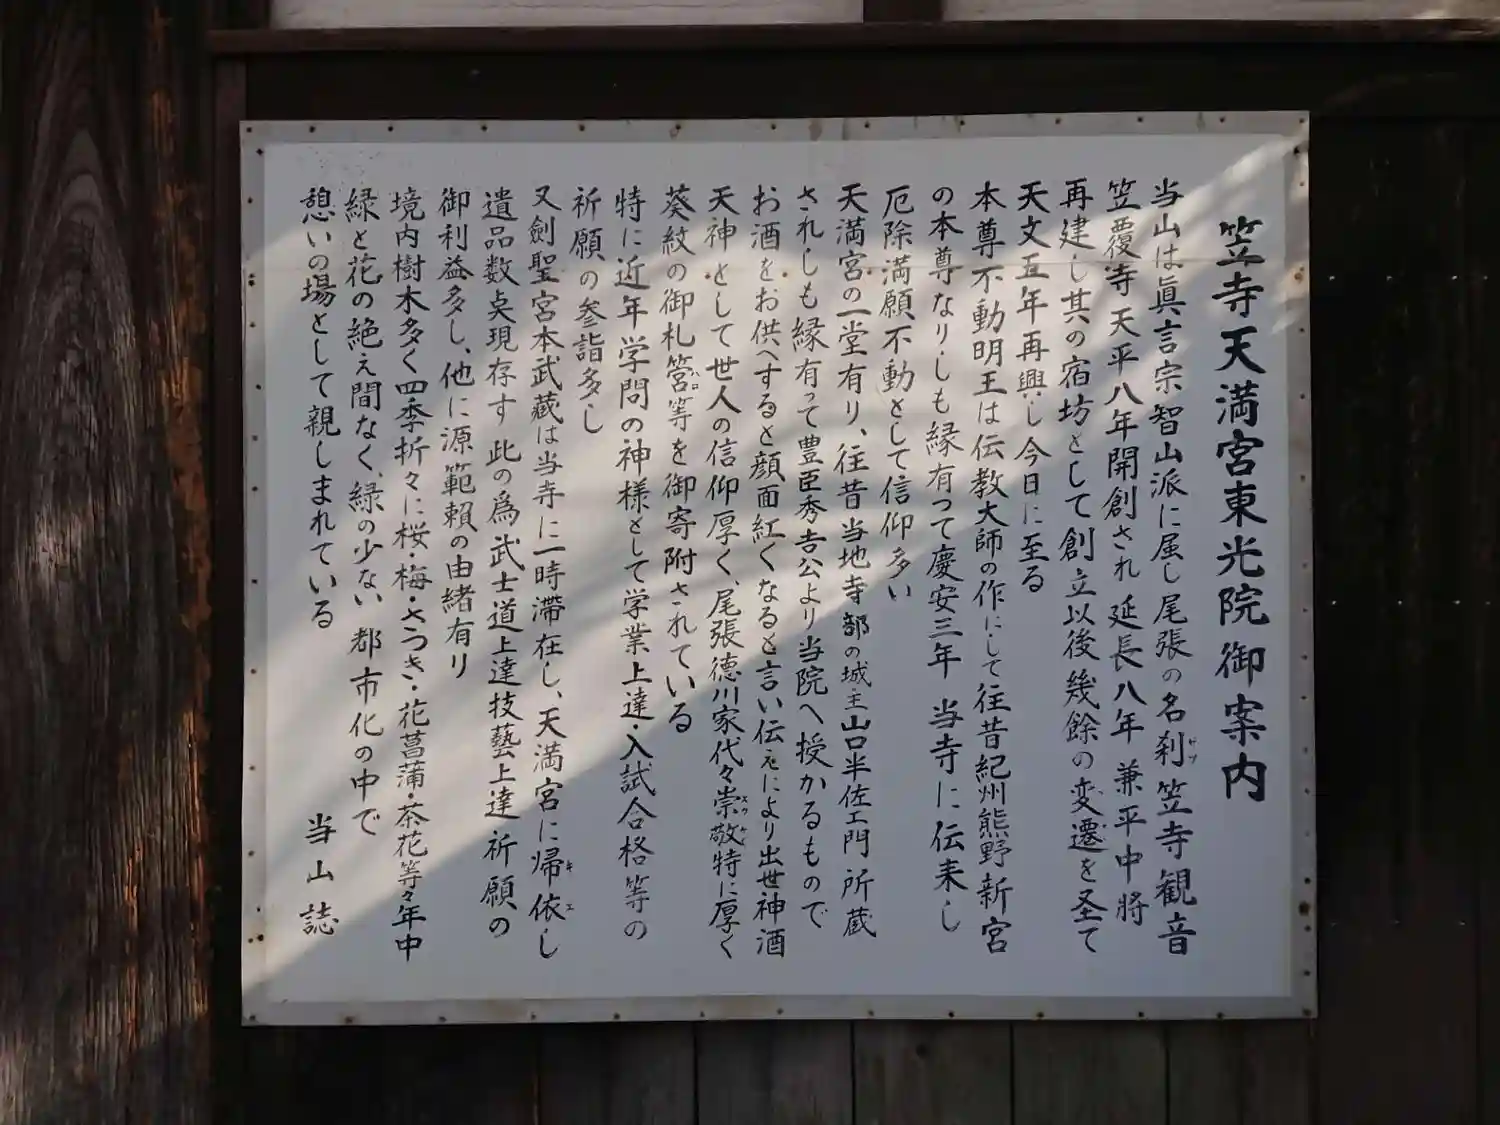 笠寺天満宮東光院御案内
当山は眞言宗智山派に属し尾張の名刹笠寺観音
笠覆寺天平八年開創され延長八年兼平中將
再建し其の宿坊として創立以後幾餘の変遷を圣て
天文五年再興し今日に至る
本尊不動明王は伝教大師の作にして往昔紀州熊野新宮
の本尊なりしも縁有って慶安三年当寺に伝来し
厄除満願不動として信仰多い
天満宮の一堂有り、往昔当地寺部の城主山口半佐エ門所蔵
されしも縁有って豊臣秀吉公より当院へ授かるもので
お酒をお供へすると顔面紅くなると言い伝えにより出世神酒
天神として世人の信仰厚く、尾張徳川家代々崇敬特に厚く
葵紋の御札筥等を御寄附されている
特に近年学問の神様として学業上達・入試合格等の
祈願の参詣多し
又劍聖宮本武蔵は当寺に一時滞在し、天満宮に帰依し
遺品数点現存す此の爲武士道上達技藝上達祈願の
御利益多し、他に源範頼の由緒有り
境内樹木多く四季折々に桜・梅・さつき・花菖蒲・茶花等々年中
緑と花の絶え間なく、緑の少ない都市化の中で
憩いの場として親しまれている
当山誌